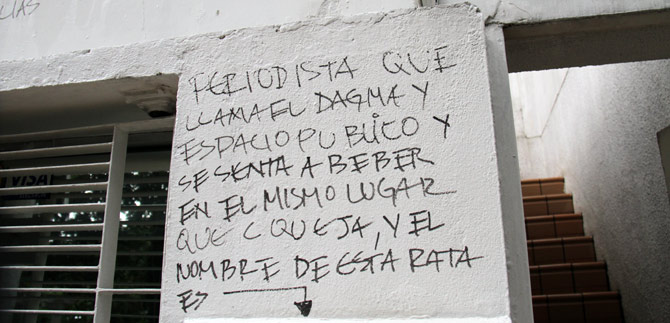 PERIODISTA QUE
LLAMA EL DAGMA Y
ESPACIO PUBLICO Y
SE SENTA A BEBER
EN EL MISMO LUGAR
QUE C QUEJA, Y EL
NOMBRE DE ESTA RATA
ES